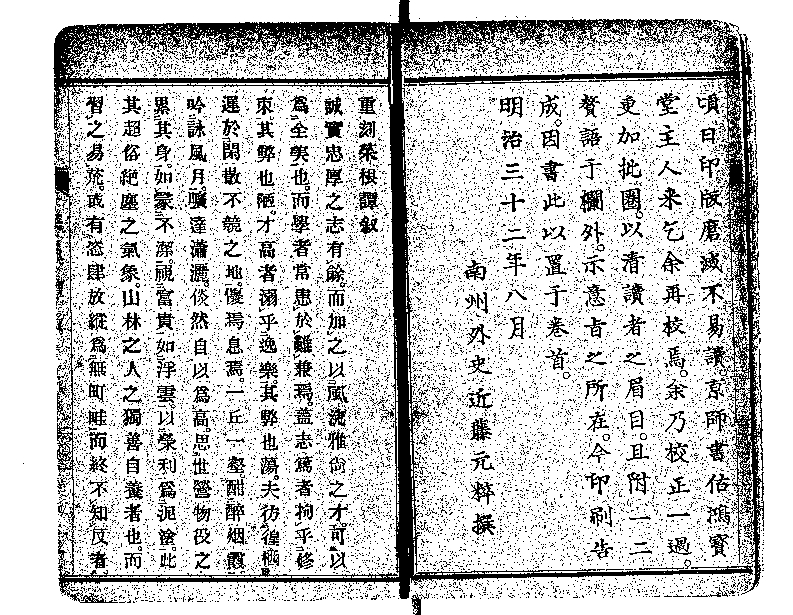 頃日印版磨滅不易讀京師書估鴻寶
堂主人来乞余再校焉余乃校正一過
更加批圏以清讀者之眉目且附一二
贅語于欄外示意旨之所在今印刷告
成因書此以置于巻首
明治三十二年八月
南州外史近藤元粹撰
重刻菜根譚叙
誠實忠厚之志有餘而加之以風流雅尚之才可以
為全矣也而學者常患於難兼焉蓋志篤者拘乎修
來其弊也陋才高者溺乎逸樂其弊也蕩夫彷徨
遲於閑散不競之地優焉息焉一丘一壑酣醉烟霞
吟詠風月曠達瀟灑倏然自以為高思世營物役之
累其身如蒙不潔視富貴如浮雲以榮利為泥塗此
其超俗絶塵之氣象山林之人之獨善自養者也而
習之易流或有恣肆放縱為無町畦而終不知反者